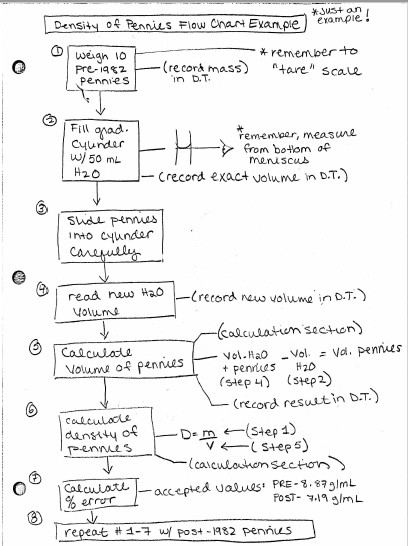 Density of Pennies Flow Chart Example
*Just an
example!
① Weigh 10
Pre-1982
pennies
(record mass)
in D.T.
* remember to
"tare" scale
② Fill grad.
Cylinder
W/ 50 mL
H2O
* remember, measure
from bottom of
meniscus
(record exact volume in D.T.)
③ Slide pennies
into cylinder
Carefully
④ read new H2O
Volume
(record new volume in D.T.)
⑤ Calculate
Volume of pennies
(calculation section)
Vol. H2O - Vol. = Vol. pennies
+ pennies H2O
(step 4) (step 2)
(record result in D.T.)
⑥ calculate
density of
pennies
D = m ← (step 1)
V ← (step 5)
(calculation section)
⑦ Calculate
% error
accepted values: PRE - 8.87 g/mL
POST - 7.19 g/mL
⑧ repeat #1-7 w/ post-1982 pennies